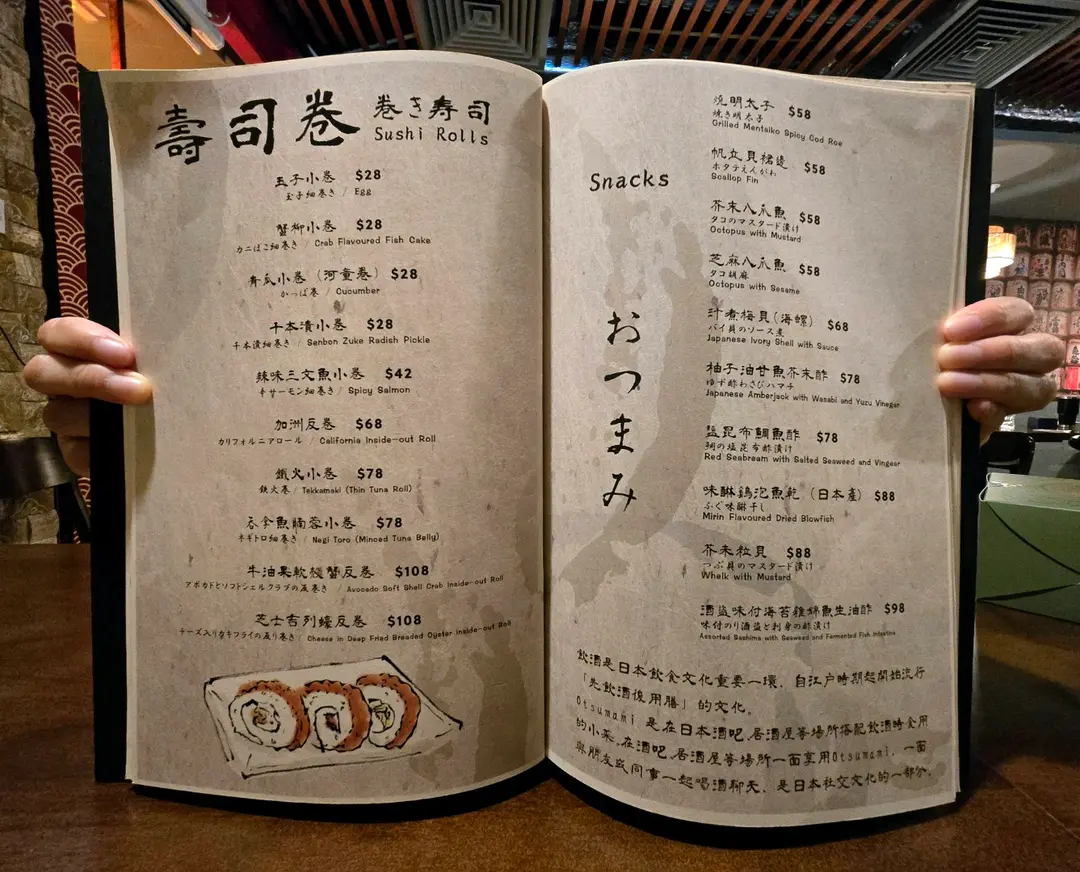 壽司卷 巻き寿司
Sushi Rolls
玉子小卷 $28
玉子細巻き / Egg
蟹柳小卷 $28
カニぼこ細巻き / Crab Flavoured Fish Cake
青瓜小卷 (河童卷) $28
かっぱ巻 / Cucumber
千本漬小卷 $28
千本漬細巻き / Senbon Zuke Radish Pickle
辣味三文魚小卷 $42
キサーモン細巻き / Spicy Salmon
加洲反卷 $68
カリフォルニアロール / California Inside-out Roll
鐵火小卷 $78
鉄火巻 / Tekkamaki (Thin Tuna Roll)
吞拿魚腩蓉小卷 $78
ネギトロ細巻き / Negi Toro (Minced Tuna Belly)
牛油果軟殼蟹反卷 $108
アボカドとソフトシェルクラブの反巻き / Avocado Soft Shell Crab Inside-out Roll
芝士吉列蠔反卷 $108
チーズ入りカキフライの反り巻き / Cheese in Deep Fried Breaded Oyster Inside-out Roll
Snacks
おつまみ
燒明太子 $58
焼き明太子
Grilled Mentaiko Spicy Cod Roe
帆立貝裙邊 $58
ホタテえんがわ
Scallop Fin
芥末八爪魚 $58
タコのマスタード漬け
Octopus with Mustard
芝麻八爪魚 $58
タコ胡麻
Octopus with Sesame
汁煮梅貝 (海螺) $68
バイ貝のソース煮
Japanese Ivory Shell with Sauce
柚子油甘魚芥末酢 $78
ゆず酢わさびハマチ
Japanese Amberjack with Wasabi and Yuzu Vinegar
鹽昆布鯛魚酢 $78
鯛の塩昆布酢漬け
Red Seabream with Salted Seaweed and Vingear
味醂鷄泡魚乾 (日本産) $88
ふぐ味醂干し
Mirin Flavoured Dried Blowfish
芥末粒貝 $88
つぶ貝のマスタード漬け
Whelk with Mustard
酒盜味付海苔雜錦魚生油酢 $98
味付のり酒盗と刺身の酢漬け
Assorted Sashimi with Seaweed and Fermented Fish Intestine
飲酒是日本飲食文化重要一環，自江户時期起開始流行
「先飲酒後用膳」的文化。
Otsumami 是在日本酒吧、居酒屋等場所搭配飲酒時食用
的小菜。在酒吧、居酒屋等場所一面享用Otsumami，一面
與朋友或同事一起喝酒聊天，是日本社交文化的一部分。